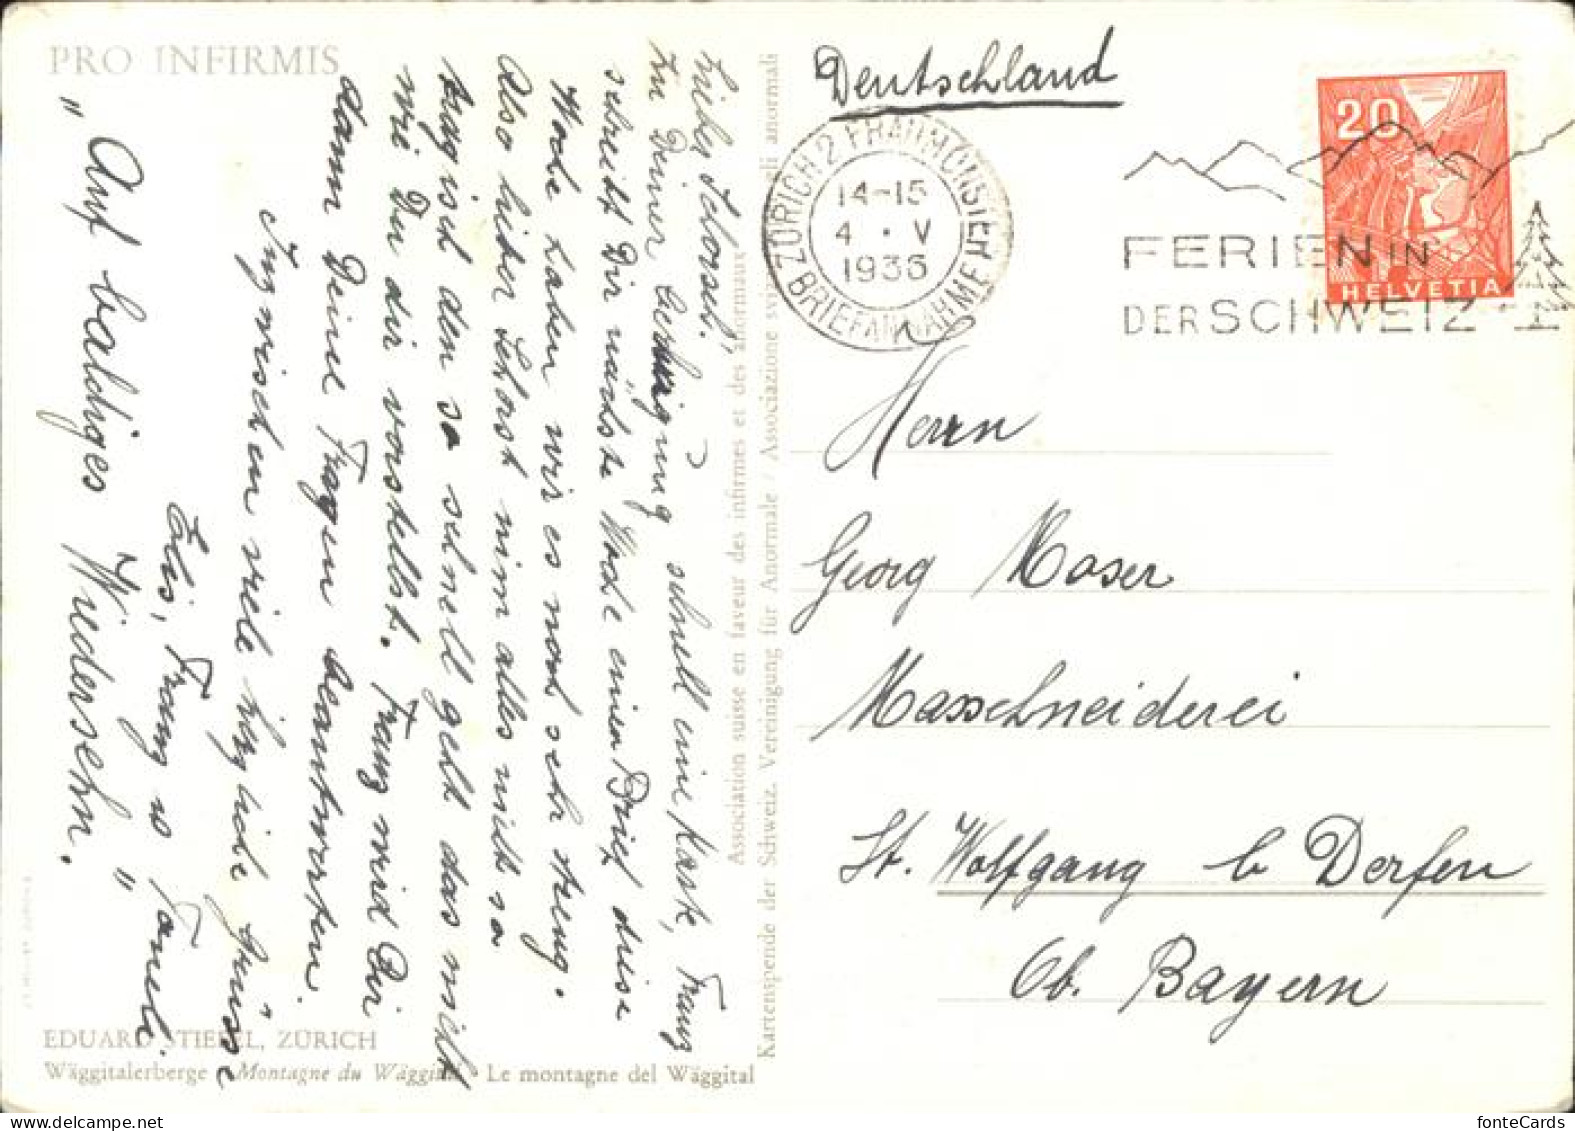 PRO INFIRMIS
Lieber Schorsch,
Zu Deiner schnell eine Karte, Franz
schreibt Dir nächste Woche einen Brief, diese
Woche haben wir es noch sehr streng.
Also lieber Schorst nimm alles nicht so
tragisch den so schnell geht das nicht
wie Du dir vorstellst. Franz wird Dir
dann Deine Fragen beantworten.
Inzwischen viele herzliche Grüsse
Franz
„Auf baldiges Wiedersehn.“
EDUARD STIEFEL, ZÜRICH
Wäggitalerberge · Montagne du Wäggital · Le montagne del Wäggital
Association suisse en faveur des infirmes et des anormaux
Kartenspende der Schweiz. Vereinigung für Anormale / Associazione svizzera gli anormali
Deutschland
ZÜRICH 2 FRAUMÜNSTER
14-15
4 · V
1936
BRIEFANNAHME
FERIEN IN
DER SCHWEIZ
20
HELVETIA
Herrn
Georg Moser
Masschneiderei
St. Wolfgang b Dorfen
Ob. Bayern
fonteCards